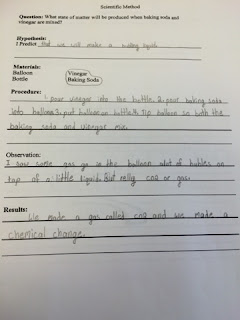 Scientific Method
Question: What state of matter will be produced when baking soda and
vinegar are mixed?
Hypothesis:
I Predict that we will make a
Materials:
Balloon Vinegar
Bottle Baking Soda
Procedure:
1. pour vinegar into the bottle. 2. pour baking soda
into balloon 3. put balloon on bottle 4. Tip balloon so both the
baking soda and vinegar mix.
Observation:
I saw some gas go in the balloon alot of on
top of a little liquid. But co2 or gas.
Results:
We made a gas called co2 and we made a
chemical change.